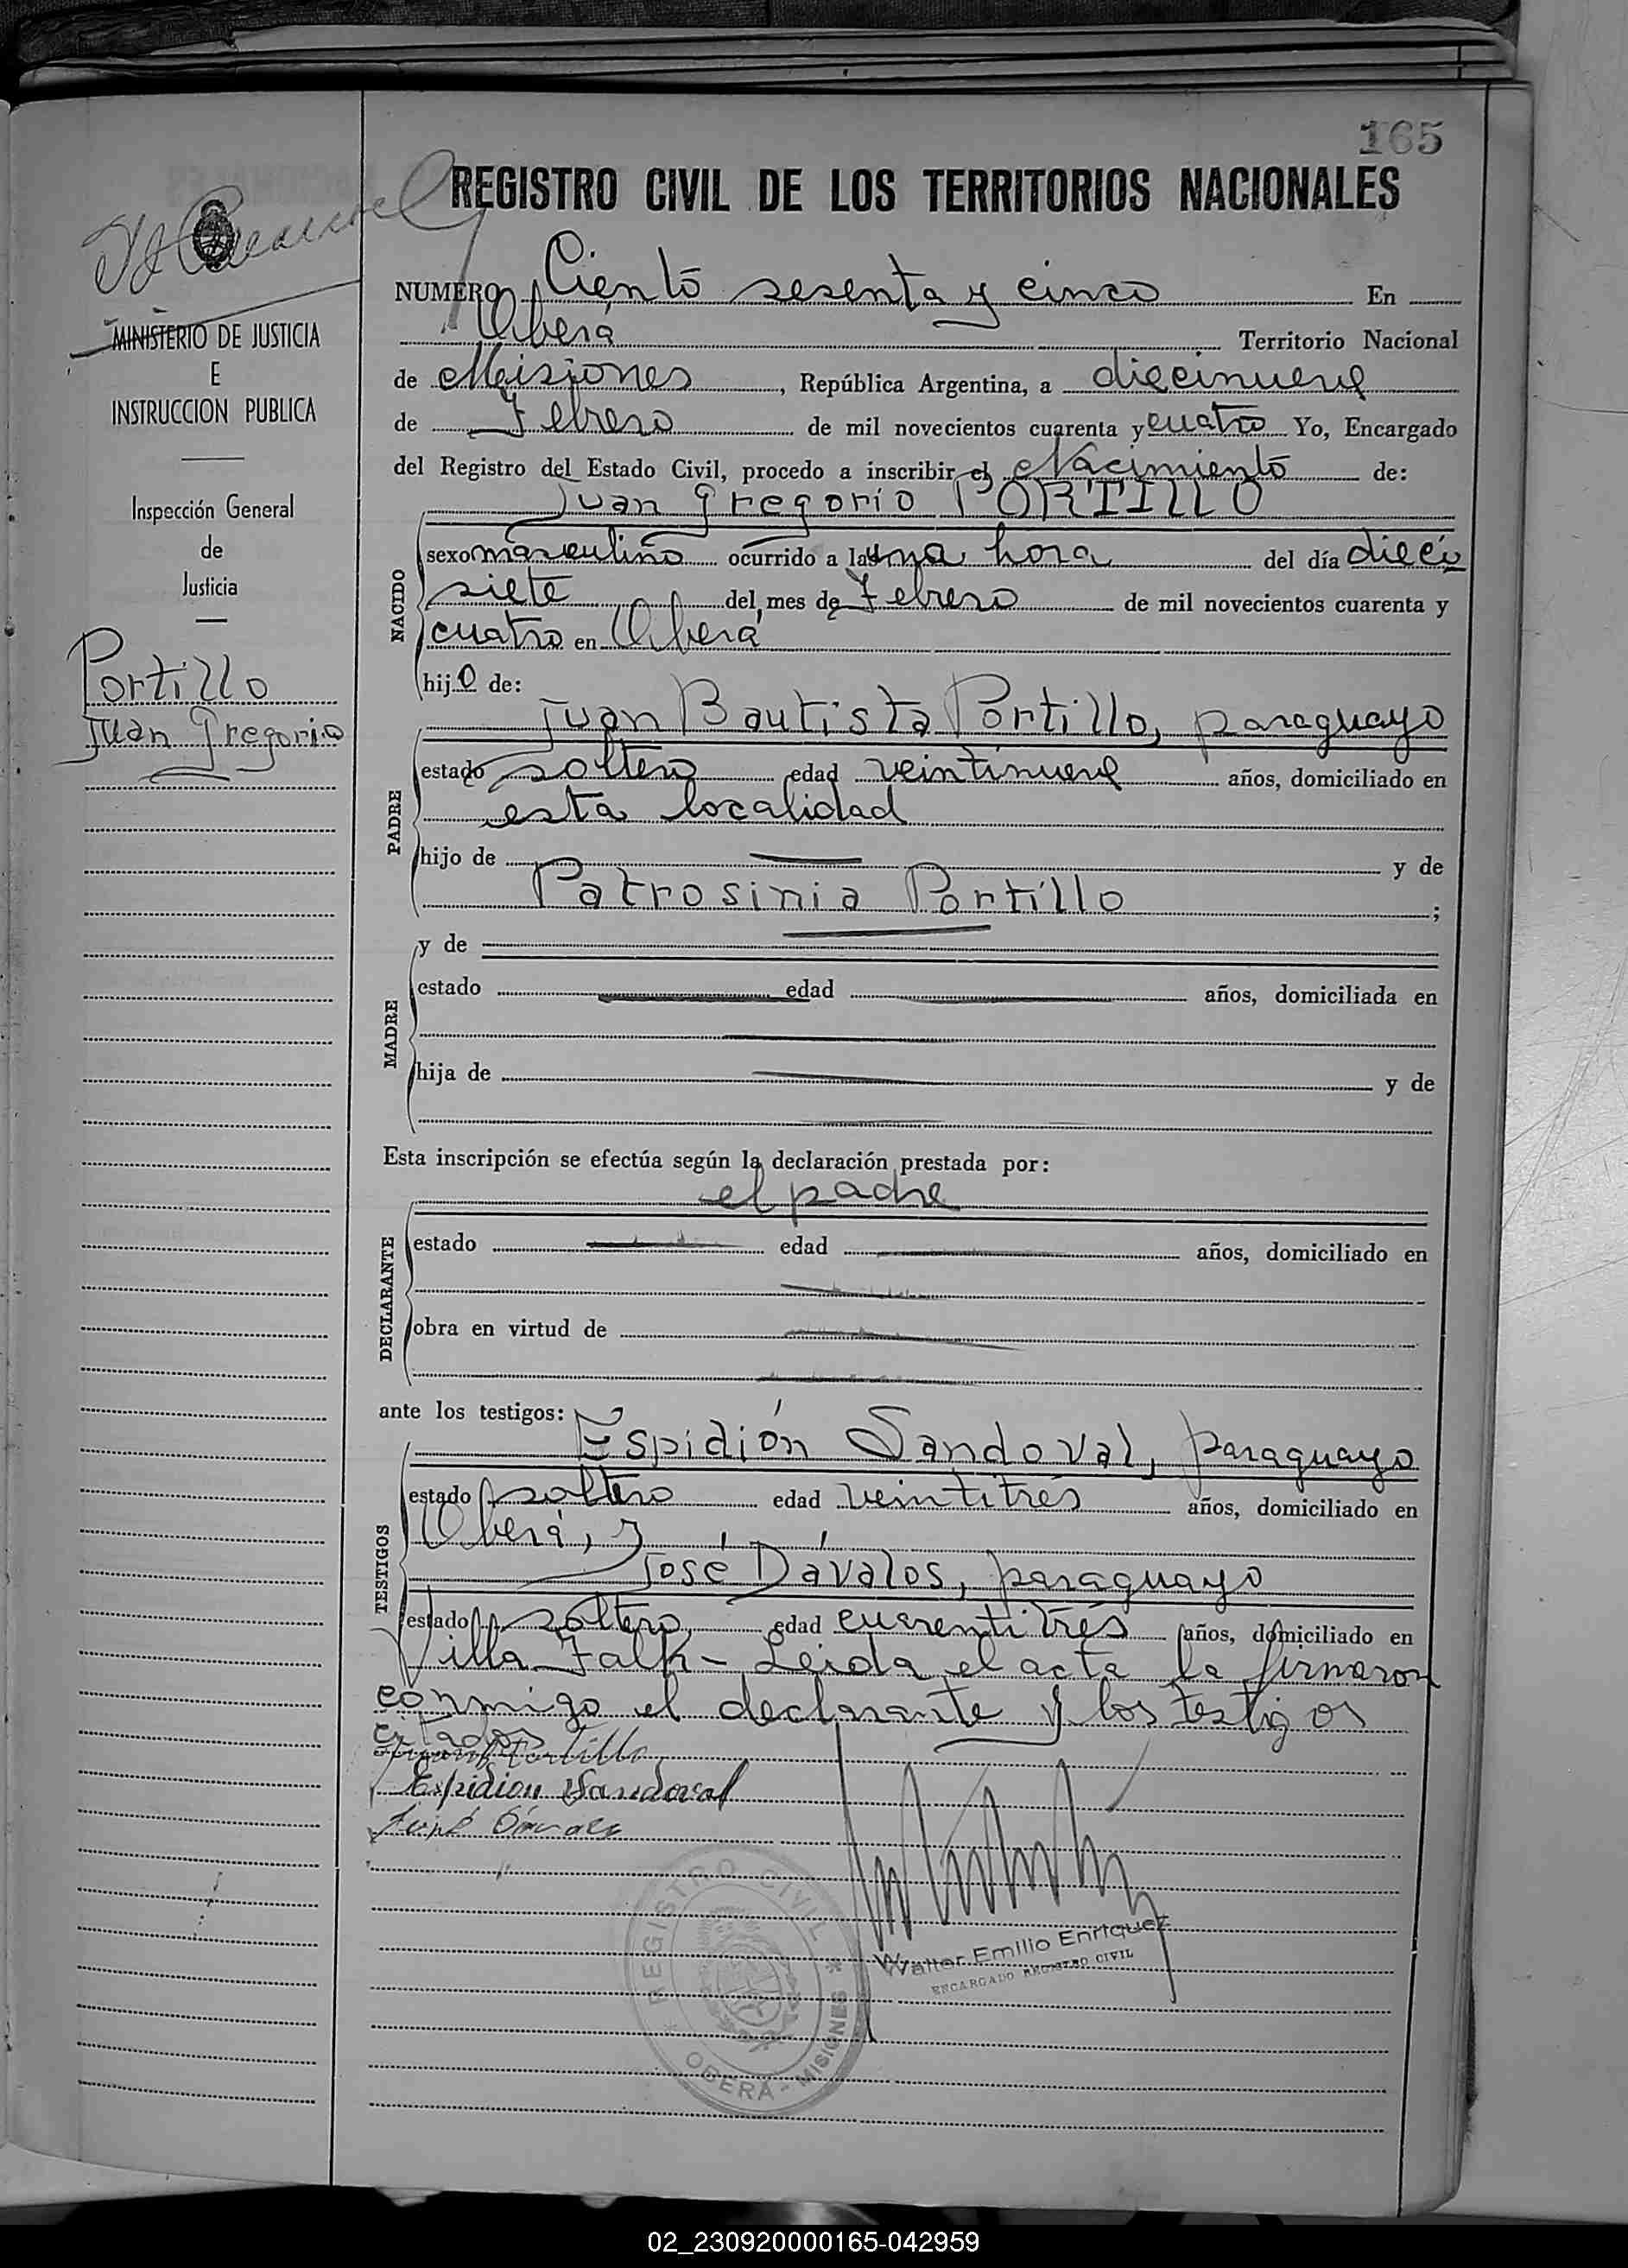 165
REGISTRO CIVIL DE LOS TERRITORIOS NACIONALES
MINISTERIO DE JUSTICIA
E
INSTRUCCION PUBLICA
Inspección General
de
Justicia
Portillo
Juan Gregorio
NUMERO Ciento sesenta y cinco En
Oberá Territorio Nacional
de Misiones, República Argentina, a diecinueve
de Febrero de mil novecientos cuarenta y cuatro Yo, Encargado
del Registro del Estado Civil, procedo a inscribir el Nacimiento de:
Juan Gregorio PORTILLO
NACIDO
sexo masculino ocurrido a las una hora del día dieci
siete del mes de Febrero de mil novecientos cuarenta y
cuatro en Oberá
hijo de:
Juan Bautista Portillo, paraguayo
PADRE
estado soltero edad veintinueve años, domiciliado en
esta localidad
hijo de y de
Patrosinia Portillo ;
MADRE
y de
estado edad años, domiciliada en
hija de y de
Esta inscripción se efectúa según la declaración prestada por:
el padre
DECLARANTE
estado edad años, domiciliado en
obra en virtud de
ante los testigos:
Espidión Sandoval, paraguayo
TESTIGOS
estado soltero edad veintitrés años, domiciliado en
Oberá, y
José Dávalos, paraguayo
estado soltero, edad cuarentitrés años, domiciliado en
Villa Falk - Leida el acta la firmaron
conmigo el declarante y los testigos
citados
Portillo
Espidion Sandoval
José
REGISTRO CIVIL
OBERÁ - MISIONES
Walter Emilio Enriquez
ENCARGADO REGISTRO CIVIL
02_230920000165-042959